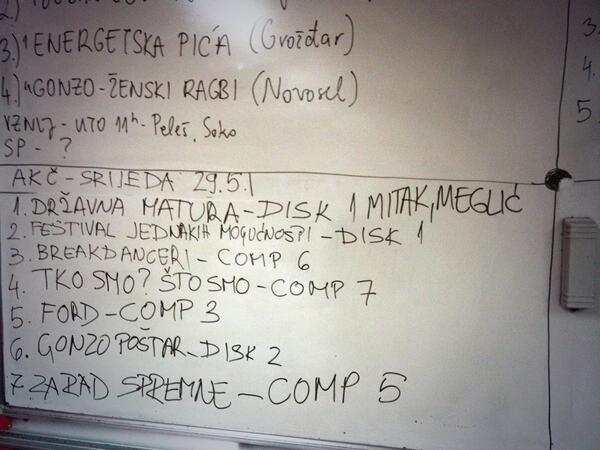 2.)
3.) ENERGETSKA PIĆA (Gvoždar)
4.) "GONZO-ŽENSKI RAGBI (Novosel)
VZNLJ - UTO 11h - Peleš, Soko
SP - ?
AKČ - SRIJEDA 29.5.1
1. DRŽAVNA MATURA - DISK 1 MITAK, MEGLIĆ
2. FESTIVAL JEDNAKIH MOGUĆNOSTI - DISK 1
3. BREAKDANCERI - COMP 6
4. TKO SMO? ŠTO SMO - COMP 7
5. FORD - COMP 3
6. GONZO POŠTAR - DISK 2
7. ZA RAD SPREMNE - COMP 5
3.
4.
5.